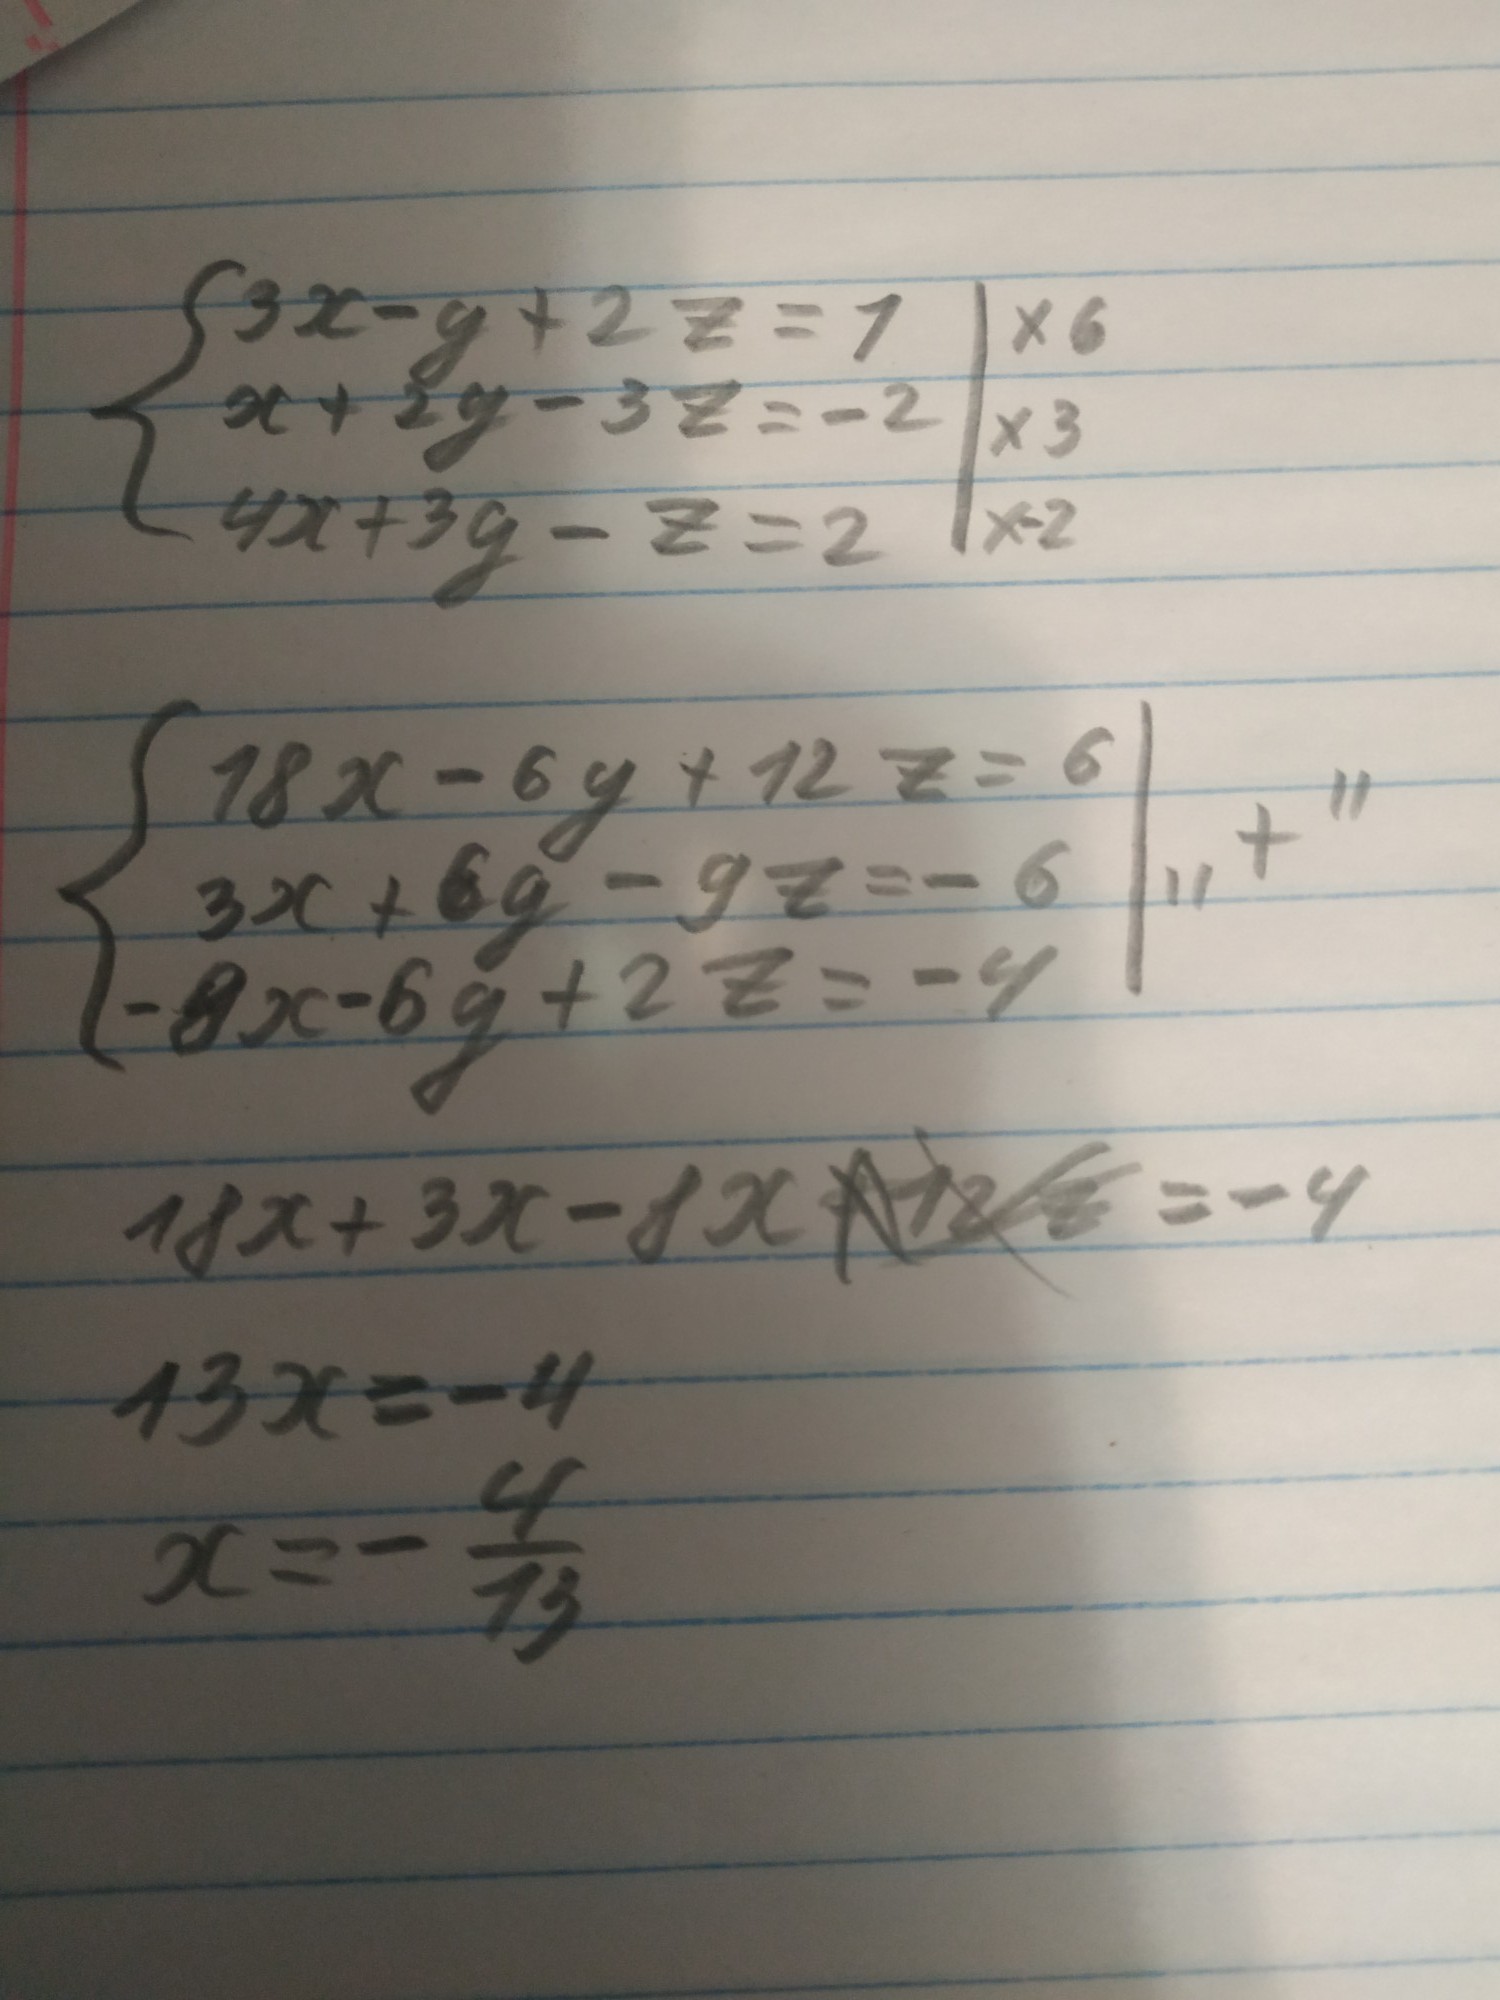 3x-y+2z=1 | ×6
x+2y-3z=-2 | ×3
4x+3y-z=2 | ×-2
18x-6y+12z=6
3x+6y-9z=-6 | "+"
-8x-6y+2z=-4
18x+3x-8x =-4
13x=-4
x=-4/13